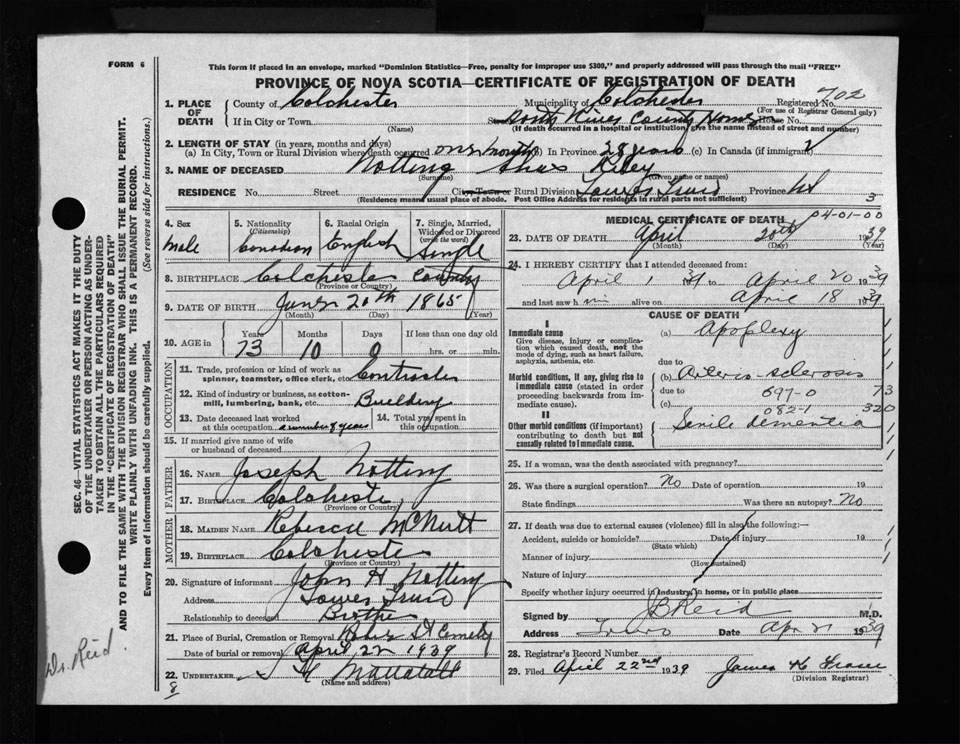 FORM 6
This form if placed in an envelope, marked "Dominion Statistics—Free, penalty for improper use $300," and properly addressed will pass through the mail "FREE"
PROVINCE OF NOVA SCOTIA—CERTIFICATE OF REGISTRATION OF DEATH
702
1. PLACE OF DEATH
County of Colchester Municipality of Colchester Registered No.
(For use of Registrar General only)
If in City or Town County Home House No.
(Name) (If death occurred in a hospital or institution, give the name instead of street and number)
2. LENGTH OF STAY (in years, months and days)
(a) In City, Town or Rural Division where death occurred one month (b) In Province 28 years (c) In Canada (if immigrant)
3. NAME OF DECEASED Notting Chas
(Surname) (Given name or names)
RESIDENCE No. Street City, Town or Rural Division Lower Truro Province NS
(Residence means usual place of abode. Post Office Address for residents in rural parts not sufficient) 3
4. Sex Male
5. Nationality (Citizenship) Canadian
6. Racial Origin English
7. Single, Married, Widowed or Divorced (write the word) Single
8. BIRTHPLACE Colchester County
(Province or Country)
9. DATE OF BIRTH June 20th 1865
(Month) (Day) (Year)
10. AGE in Years Months Days If less than one day old
73 10 0 hrs. or min.
OCCUPATION
11. Trade, profession or kind of work as spinner, teamster, office clerk, etc. Contractor
12. Kind of industry or business, as cotton-mill, lumbering, bank, etc. Building
13. Date deceased last worked at this occupation a number of years
14. Total years spent in this occupation
15. If married give name of wife or husband of deceased
FATHER
16. NAME Joseph Notting
17. BIRTHPLACE Colchester
(Province or Country)
MOTHER
18. MAIDEN NAME Rebecca McNutt
19. BIRTHPLACE Colchester
(Province or Country)
20. Signature of informant John H Notting
Address Lower Truro
Relationship to deceased Brother
21. Place of Burial, Cremation or Removal Cemetery
Date of burial or removal April 22 1939
22. UNDERTAKER Mattatall
(Name and address)
8
MEDICAL CERTIFICATE OF DEATH
04-01-00
23. DATE OF DEATH April 20th 1939
(Month) (Day) (Year)
24. I HEREBY CERTIFY that I attended deceased from:
April 1 39 to April 20 1939
and last saw him alive on April 18 1939
CAUSE OF DEATH
I
Immediate cause
Give disease, injury or complication which caused death, not the mode of dying, such as heart failure, asphyxia, asthenia, etc.
(a) Apoplexy
due to
Morbid conditions, if any, giving rise to immediate cause (stated in order proceeding backwards from immediate cause).
(b) Arterio-sclerosis
due to 097-0 73
(c) 082-1 320
II
Other morbid conditions (if important) contributing to death but not causally related to immediate cause.
Senile dementia
25. If a woman, was the death associated with pregnancy?
26. Was there a surgical operation? No Date of operation 19
State findings Was there an autopsy? No
27. If death was due to external causes (violence) fill in also the following:—
Accident, suicide or homicide? Date of injury 19
(State which)
Manner of injury
(How sustained)
Nature of injury
Specify whether injury occurred in industry, in home, or in public place
Signed by J B Reid M.D.
Address Truro Date Apr 21 1939
28. Registrar's Record Number
29. Filed April 22nd 1939 James H
(Division Registrar)
SEC. 46—VITAL STATISTICS ACT MAKES IT THE DUTY OF THE UNDERTAKER OR PERSON ACTING AS UNDERTAKER TO OBTAIN ALL THE PARTICULARS REQUIRED IN THE "CERTIFICATE OF REGISTRATION OF DEATH" AND TO FILE THE SAME WITH THE DIVISION REGISTRAR WHO SHALL ISSUE THE BURIAL PERMIT.
WRITE PLAINLY WITH UNFADING INK. THIS IS A PERMANENT RECORD.
Every item of information should be carefully supplied. (See reverse side for instructions.)
Dr. Reid.